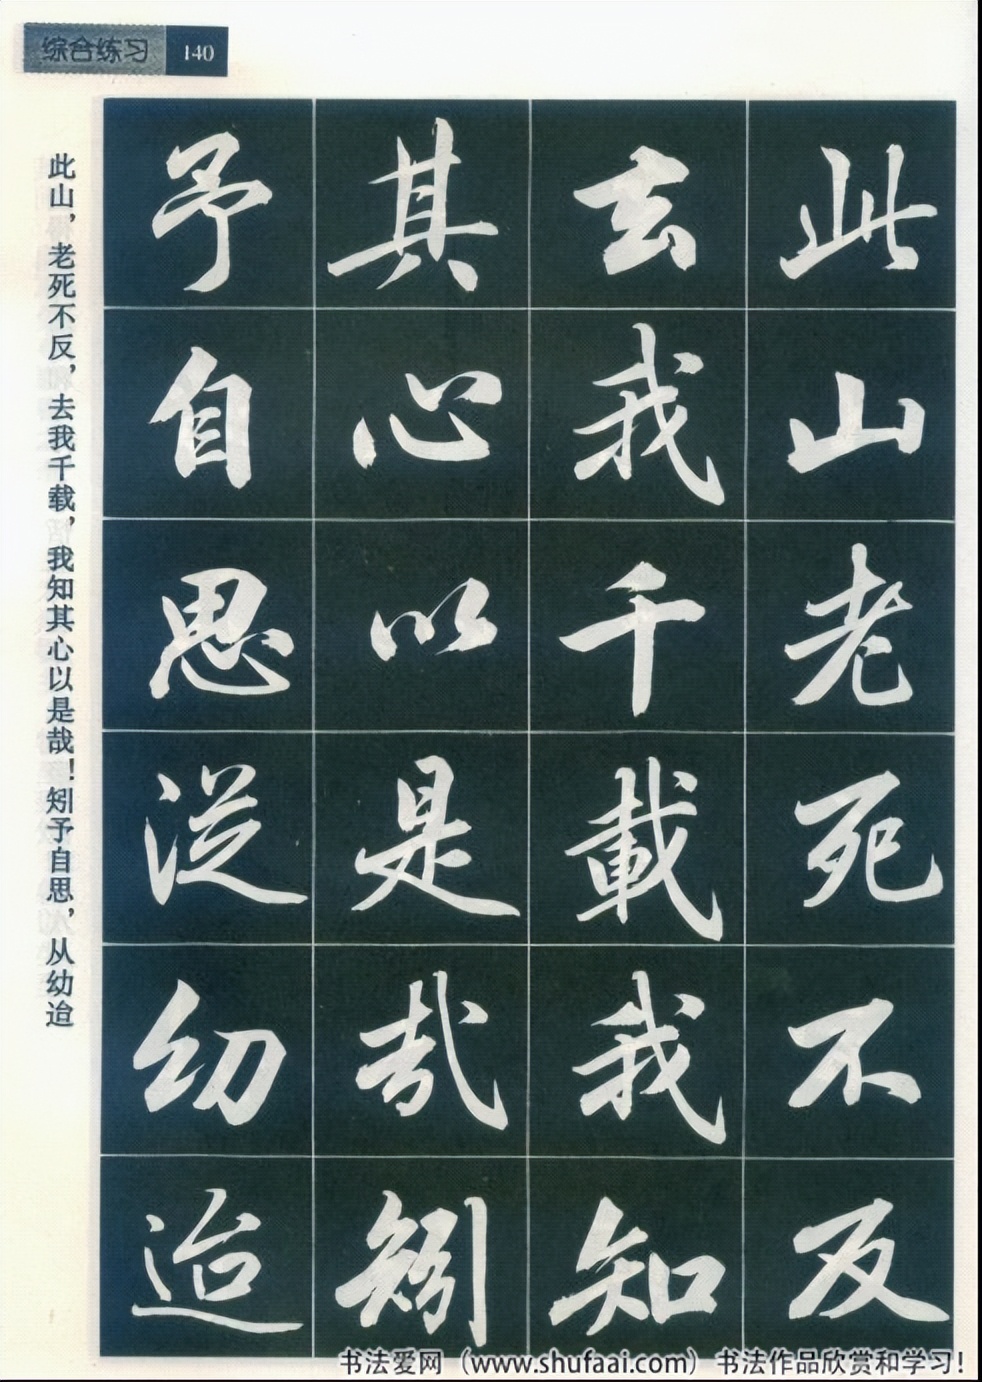 综合练习 140
此山老死不反
去我千載我知
其心以是哉矧
予自思從幼迨
此山，老死不反，去我千载，我知其心以是哉！矧予自思，从幼迨
书法爱网（www.shufaai.com）书法作品欣赏和学习！